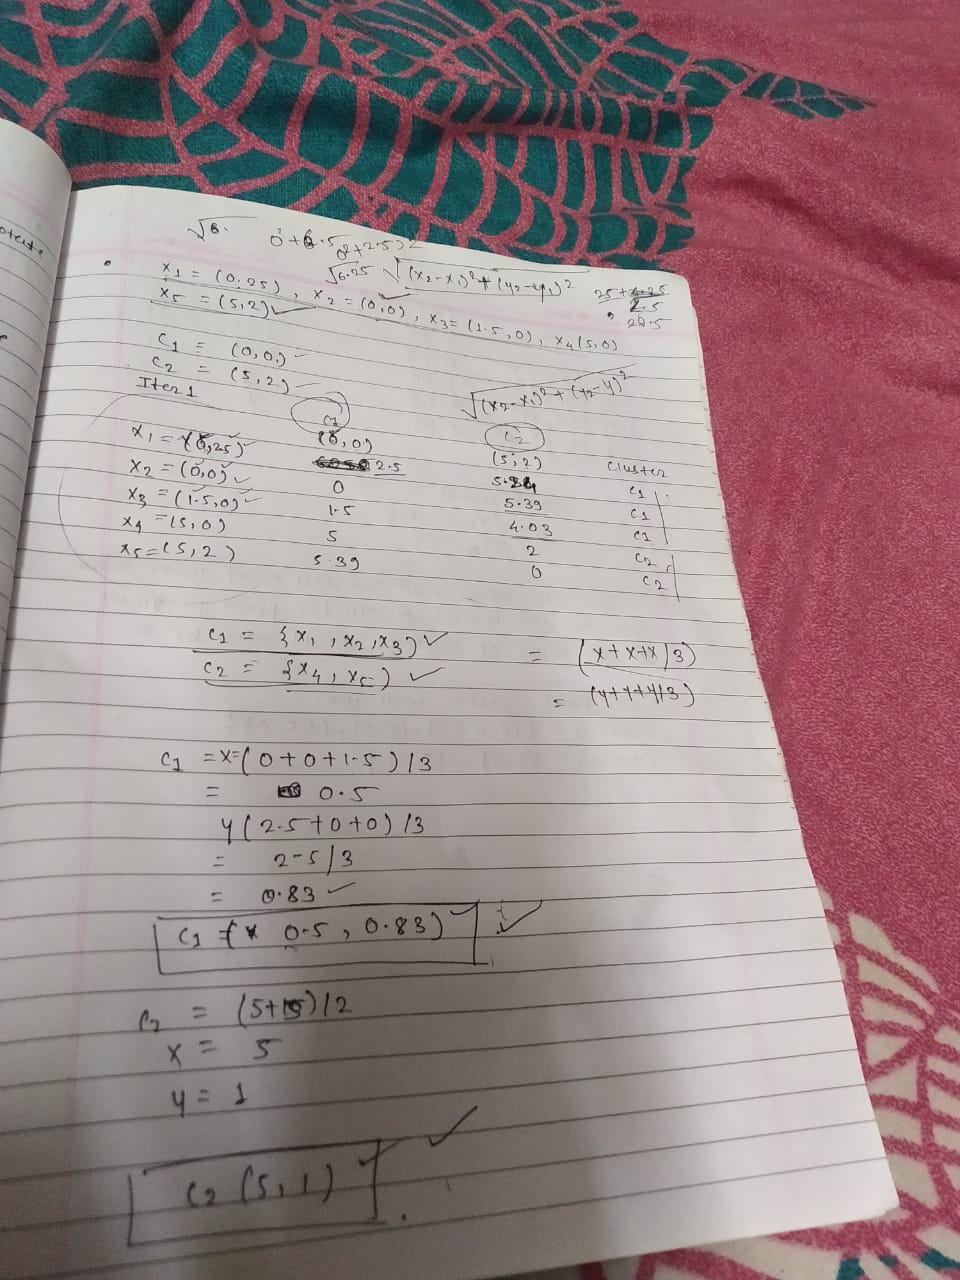 √6.
0²+6.5
0²+2.5)2
√6.25 √(x2-x1)²+(y2-y1)²
25+6.25
2.5
28.5
x1 = (0.25), x2 = (0,0), x3= (1.5,0), x4(5,0)
x5 = (5,2)
C1 = (0,0)
C2 = (5,2)
Iter1
√(x2-x1)²+(y2-y)²
C1 C2
(0,0) (5,2) Cluster
x1 = (0,25) 2.5 5.24 C1
x2 = (0,0) 0 5.39 C1
x3 = (1.5,0) 1.5 4.03 C1
x4 = (5,0) 5 2 C2
x5=(5,2) 5.39 0 C2
C1 = {x1, x2, x3)
= (x+x+x/3)
C2 = {x4, x5)
= (y+y+y/3)
C1 =x=(0+0+1.5)/3
= 0.5
y(2.5+0+0)/3
= 2-5/3
= 0.83
C1 = (x 0.5, 0.83)
C2 = (5+5)/2
x = 5
y = 1
C2 (5,1)